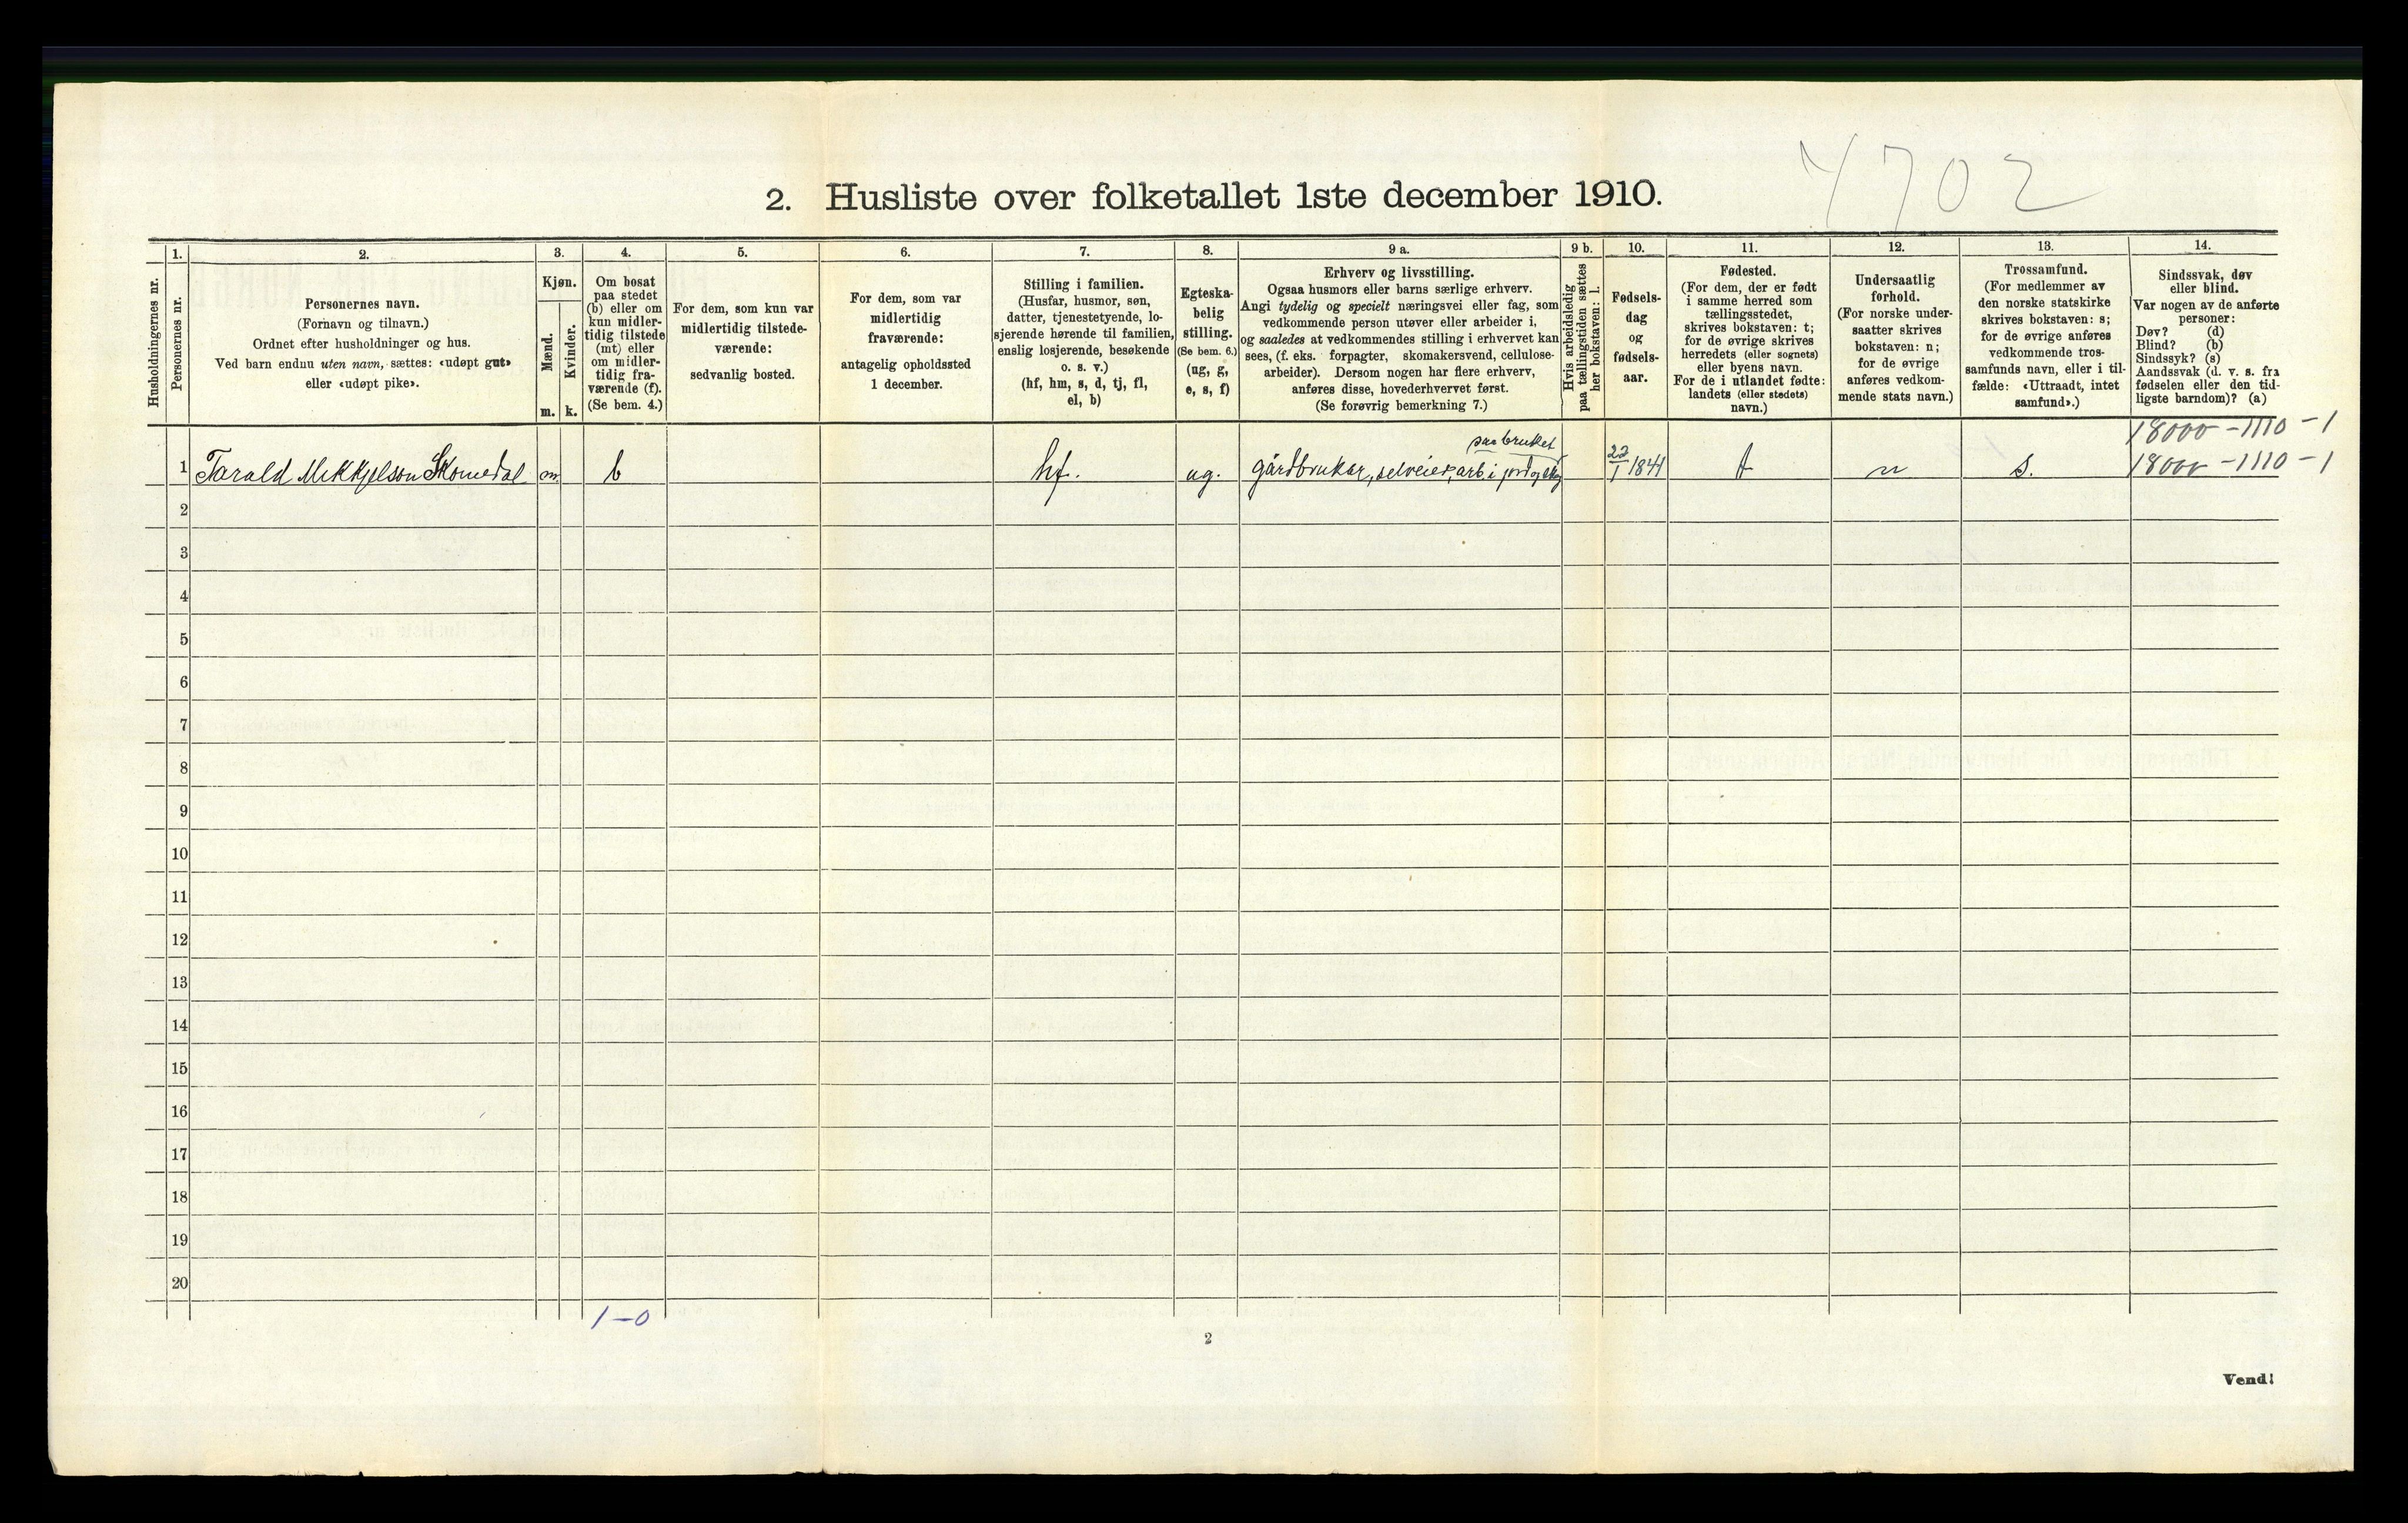 4702
2. Husliste over folketallet 1ste december 1910.
Husholdningernes nr.
1.
Personernes nr.
2.
Personernes navn.
(Fornavn og tilnavn.)
Ordnet efter husholdninger og hus.
Ved barn endnu uten navn, sættes: «udøpt gut»
eller «udøpt pike».
3.
Kjøn.
Mænd.
Kvinder.
m. k.
4.
Om bosat
paa stedet
(b) eller om
kun midler-
tidig tilstede
(mt) eller
om midler-
tidig fra-
værende (f).
(Se bem. 4.)
5.
For dem, som kun var
midlertidig tilstede-
værende:
sedvanlig bosted.
6.
For dem, som var
midlertidig
fraværende:
antagelig opholdssted
1 december.
7.
Stilling i familien.
(Husfar, husmor, søn,
datter, tjenestetyende, lo-
sjerende hørende til familien,
enslig losjerende, besøkende
o. s. v.)
(hf, hm, s, d, tj, fl,
el, b)
8.
Egteska-
belig
stilling.
(Se bem. 6.)
(ug, g,
e, s, f)
9 a.
Erhverv og livsstilling.
Ogsaa husmors eller barns særlige erhverv.
Angi tydelig og specielt næringsvei eller fag, som
vedkommende person utøver eller arbeider i,
og saaledes at vedkommendes stilling i erhvervet kan
sees, (f. eks. forpagter, skomakersvend, cellulose-
arbeider). Dersom nogen har flere erhverv,
anføres disse, hovederhvervet først.
(Se forøvrig bemerkning 7.)
9 b.
Hvis arbeidsledig
paa tællingstiden sættes
her bokstaven: l.
10.
Fødsels-
dag
og
fødsels-
aar.
11.
Fødested.
(For dem, der er født
i samme herred som
tællingsstedet,
skrives bokstaven: t;
for de øvrige skrives
herredets (eller sognets)
eller byens navn.
For de i utlandet fødte:
landets (eller stedets)
navn.)
12.
Undersaatlig
forhold.
(For norske under-
saatter skrives
bokstaven: n;
for de øvrige
anføres vedkom-
mende stats navn.)
13.
Trossamfund.
(For medlemmer av
den norske statskirke
skrives bokstaven: s;
for de øvrige anføres
vedkommende tros-
samfunds navn, eller i til-
fælde: «Uttraadt, intet
samfund».)
14.
Sindssvak, døv
eller blind.
Var nogen av de anførte
personer:
Døv? (d)
Blind? (b)
Sindssyk? (s)
Aandssvak (d. v. s. fra
fødselen eller den tid-
ligste barndom)? (a)
18000 - 1110 - 1
paa bruket
1 Tarald Mikkjelson Skomedal m. b hf. ug. gårdbruker, selveier, arb. i jord og skog 22/1 1841 t n s. 18000 - 1110 - 1
2
3
4
5
6
7
8
9
10
11
12
13
14
15
16
17
18
19
20
1-0
2
Vend!